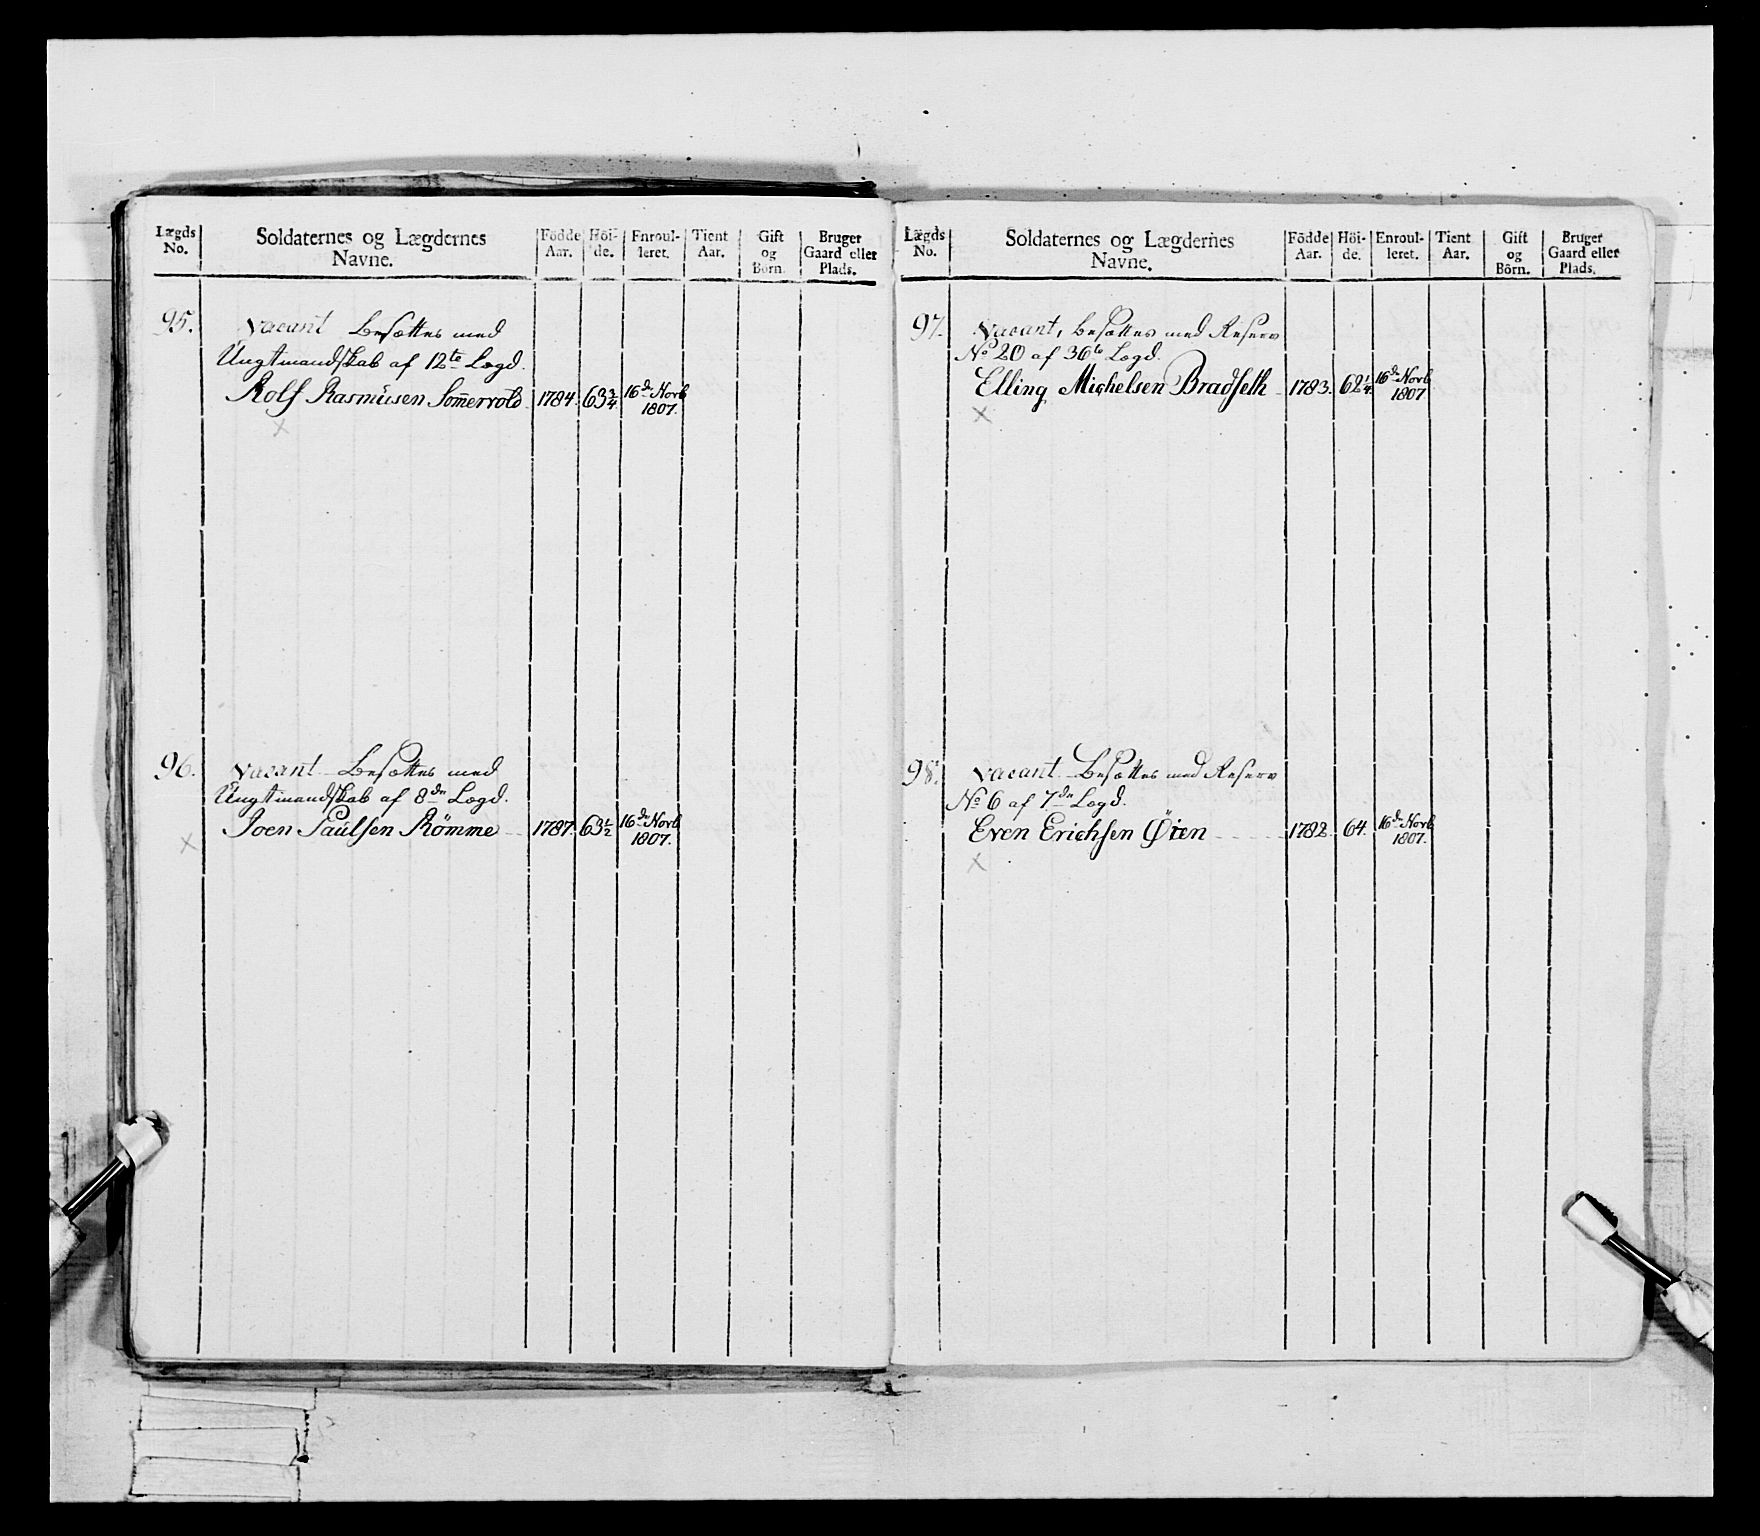 Lægds No.
Soldaternes og Lægdernes Navne.
Födde Aar.
Höide.
Enroulleret.
Tient Aar.
Gift og Börn.
Bruger Gaard eller Plads.
95. Vacant Besættes med
Ungtmandskab af 12te Lægd.
Rolf Rasmüsen Som̄ervold 1784. 63¾ 16de Novb 1807.
×
96. Vacant Besættes med
Ungtmandskab af 8de Lægd.
Joen Paülsen Römme 1787. 63½ 16de Novb 1807.
×
Lægds No.
Soldaternes og Lægdernes Navne.
Födde Aar.
Höide.
Enroulleret.
Tient Aar.
Gift og Börn.
Bruger Gaard eller Plads.
97. Vacant, besættes med Reserv
No 20 af 36te Lægd.
Elling Michelsen Bradseth 1783. 62¼ 16de Novb 1807
×
98. Vacant Besættes med Reserv
No 6 af 7de Lægd.
Even Erichsen Öien 1782. 64. 16de Novb 1807.
×